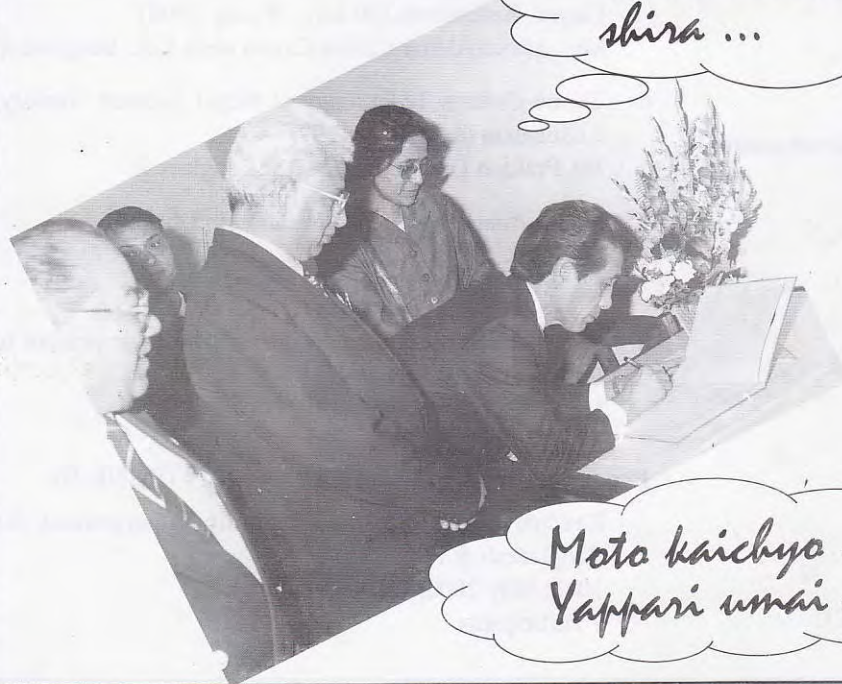 shira ...
Moto kaichyo
Yappari umai